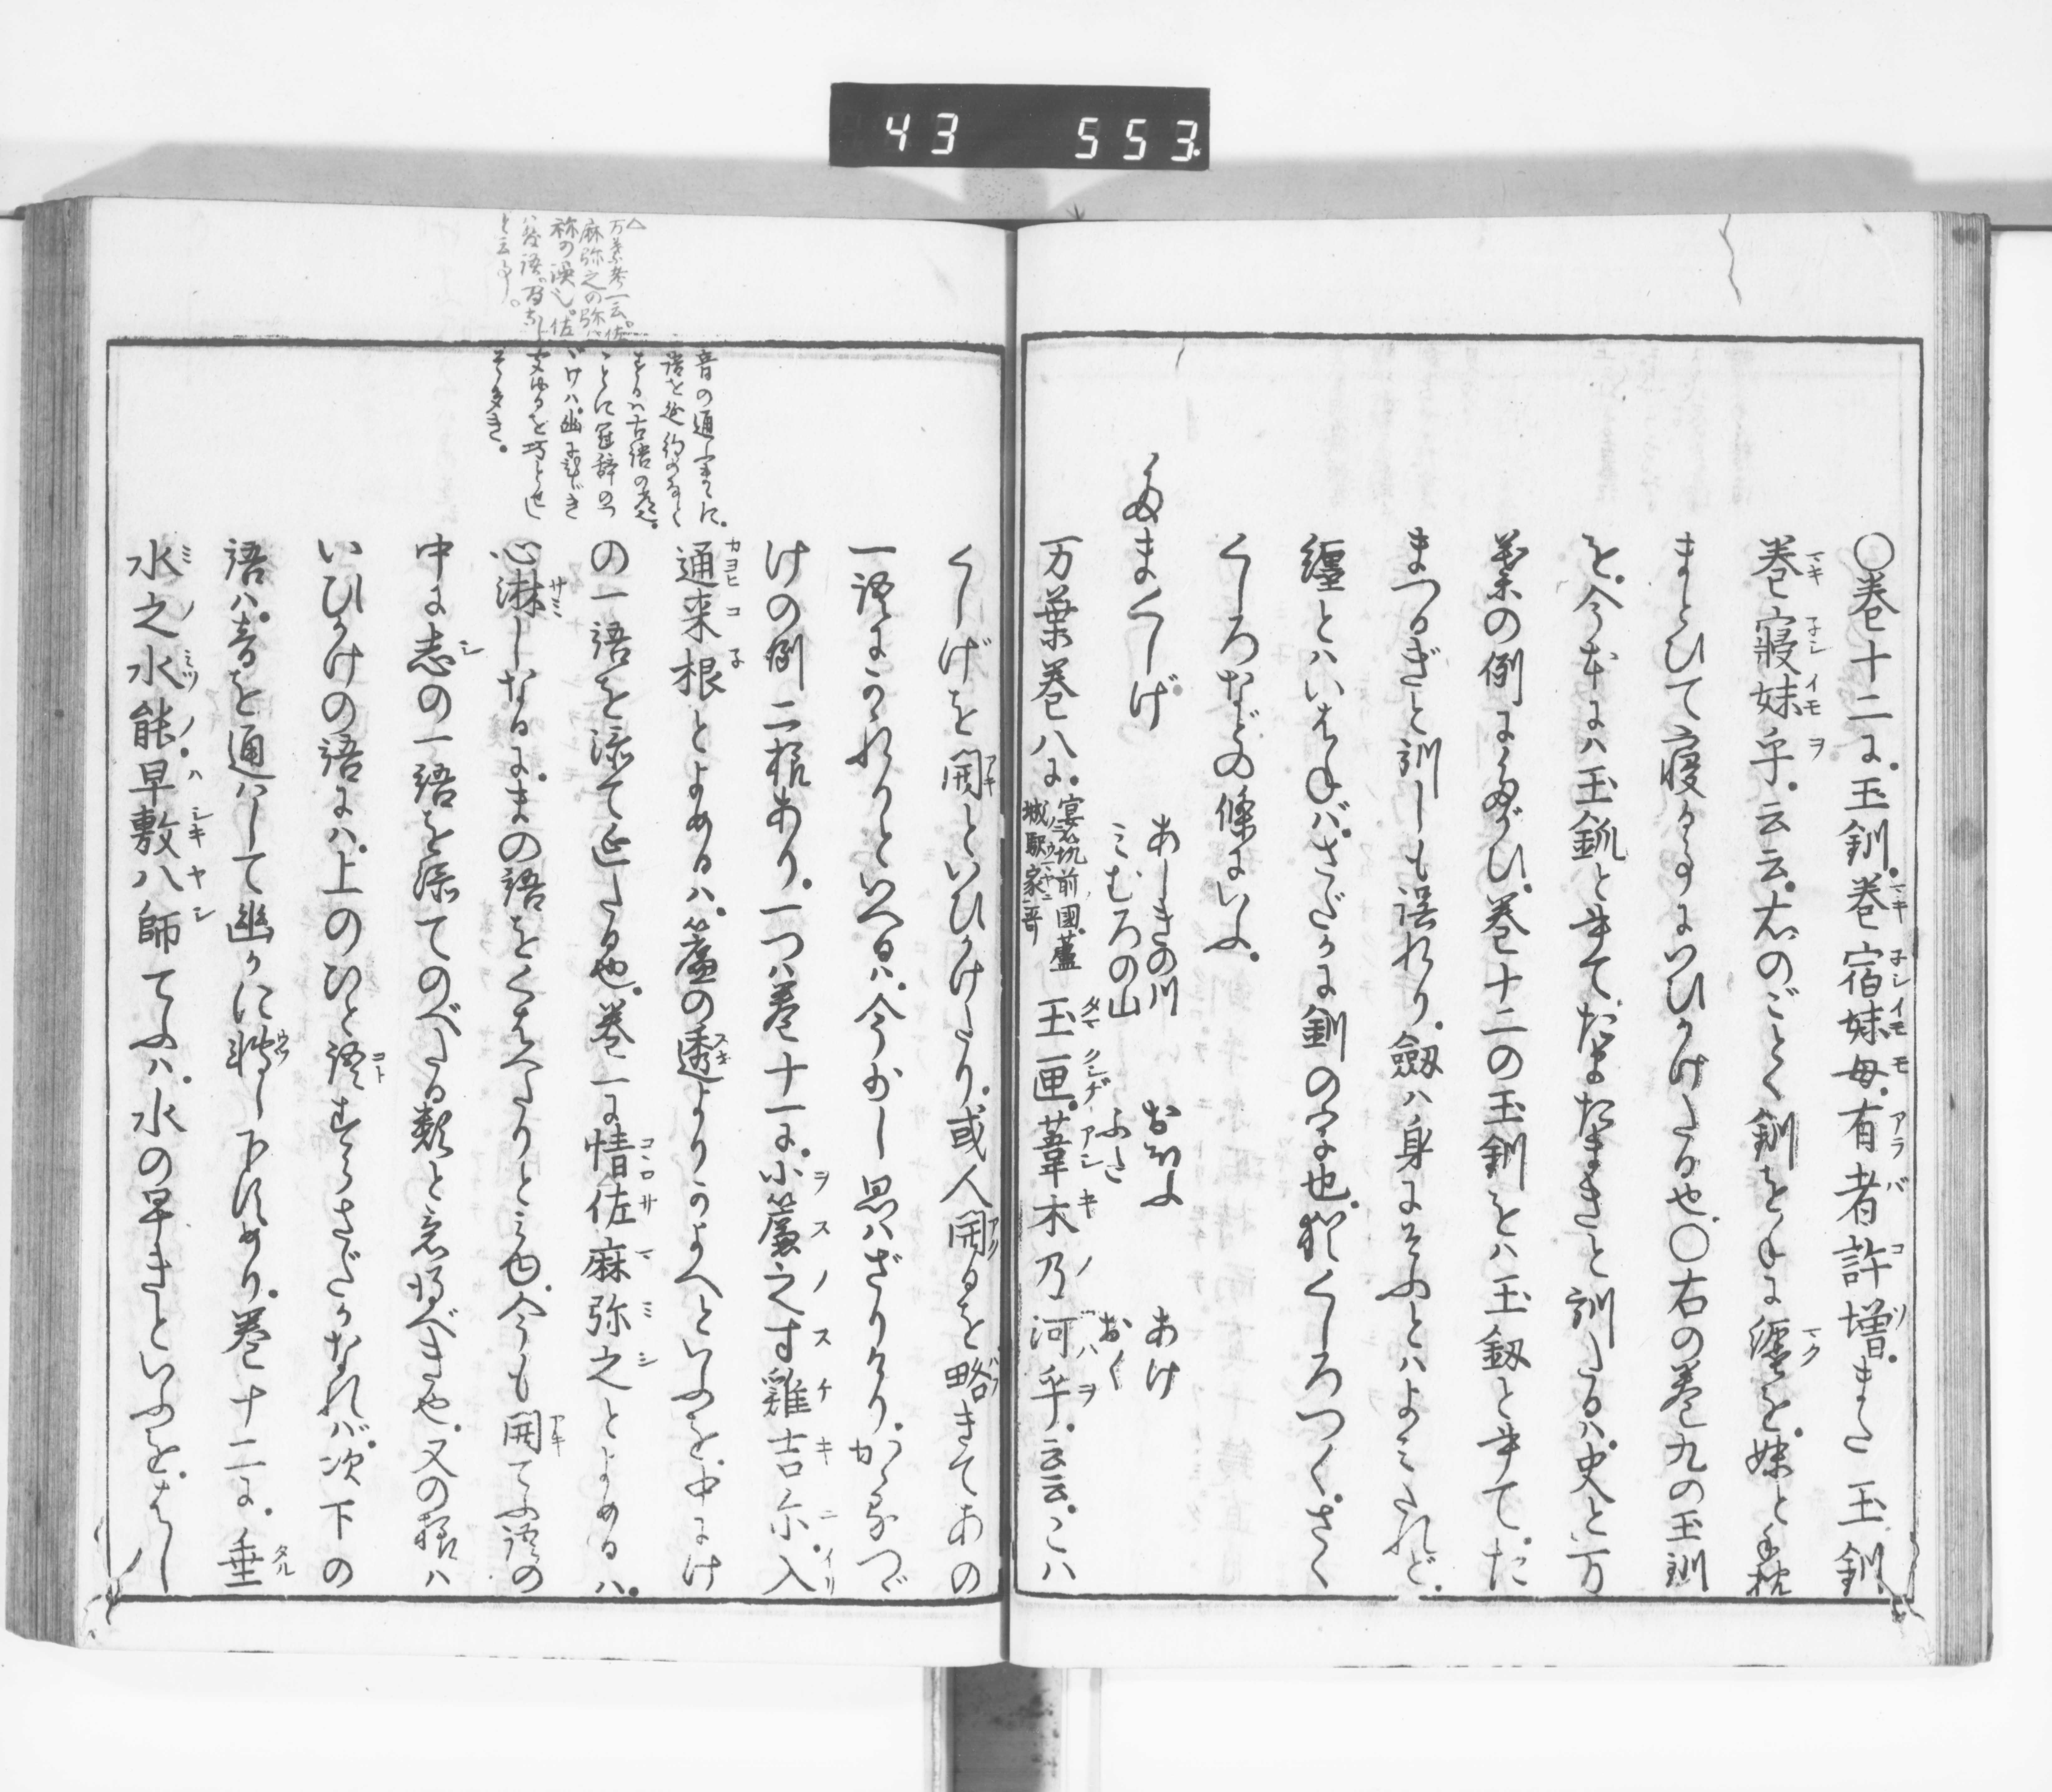 43 553
○巻十二に。玉釧。巻宿妹母。有者許増。また 玉釧
巻寝妹乎。云云。右のごとく釧を手に纏を。妹と手枕
まとひて寝かるにいひかけたる也。○右の巻九の玉釧
を。今本には玉釼と書て。たまたまきと訓たるは。史と万
葉の例にたがひ。巻十二の玉釧をは玉釼と書て。た
まつるぎと訓しも誤れり。劔は身にそふとはよみたれど。
纏とはいはねば。さだかに釧の字也。猶くしろつく。さく
くしろなどの條にいふ。
たまくしげ
あしきの川
みむろの山
おほふ
ふた
あけ
おく
万葉巻八に。宴筑前國。蘆城駅家哥 玉匣。葦木乃河乎。云云。こは
くしげを開といひかけたり。或人開るを略きてあの
一語にかれりといへるは。今おし思はざりけり。かゝるつゞ
けの例二様あり。一つは巻十一に。小簾之寸雞吉尓。入
通来根とよめるは。簾の透よりかよへといふを。中にけ
の一語を添て延たる也。巻一に情佐麻弥之とよめるは。
心淋しなるに。まの語をくはへたりとみゆ。今も開てふ語の
中に志の一語を添てのべたる類と意得べき也。又の様は
いひかけの語には。上のひと語すらさだかなれば。次下の
語は。音を通はして幽かに轉し下すめり。巻十二に。垂
水之水能。早敷八師てふは。水の早きといふを。はし
音の通ふまに。
語を延約のなく
するは古語の常也。
ことに冠辞の
つゞけは。幽にひゞき
文ゆるを巧とせし
ぞ多き。
△
万葉考一云。佐
麻弥之の弥は
祢の誤也。佐
は発語。
と云り。